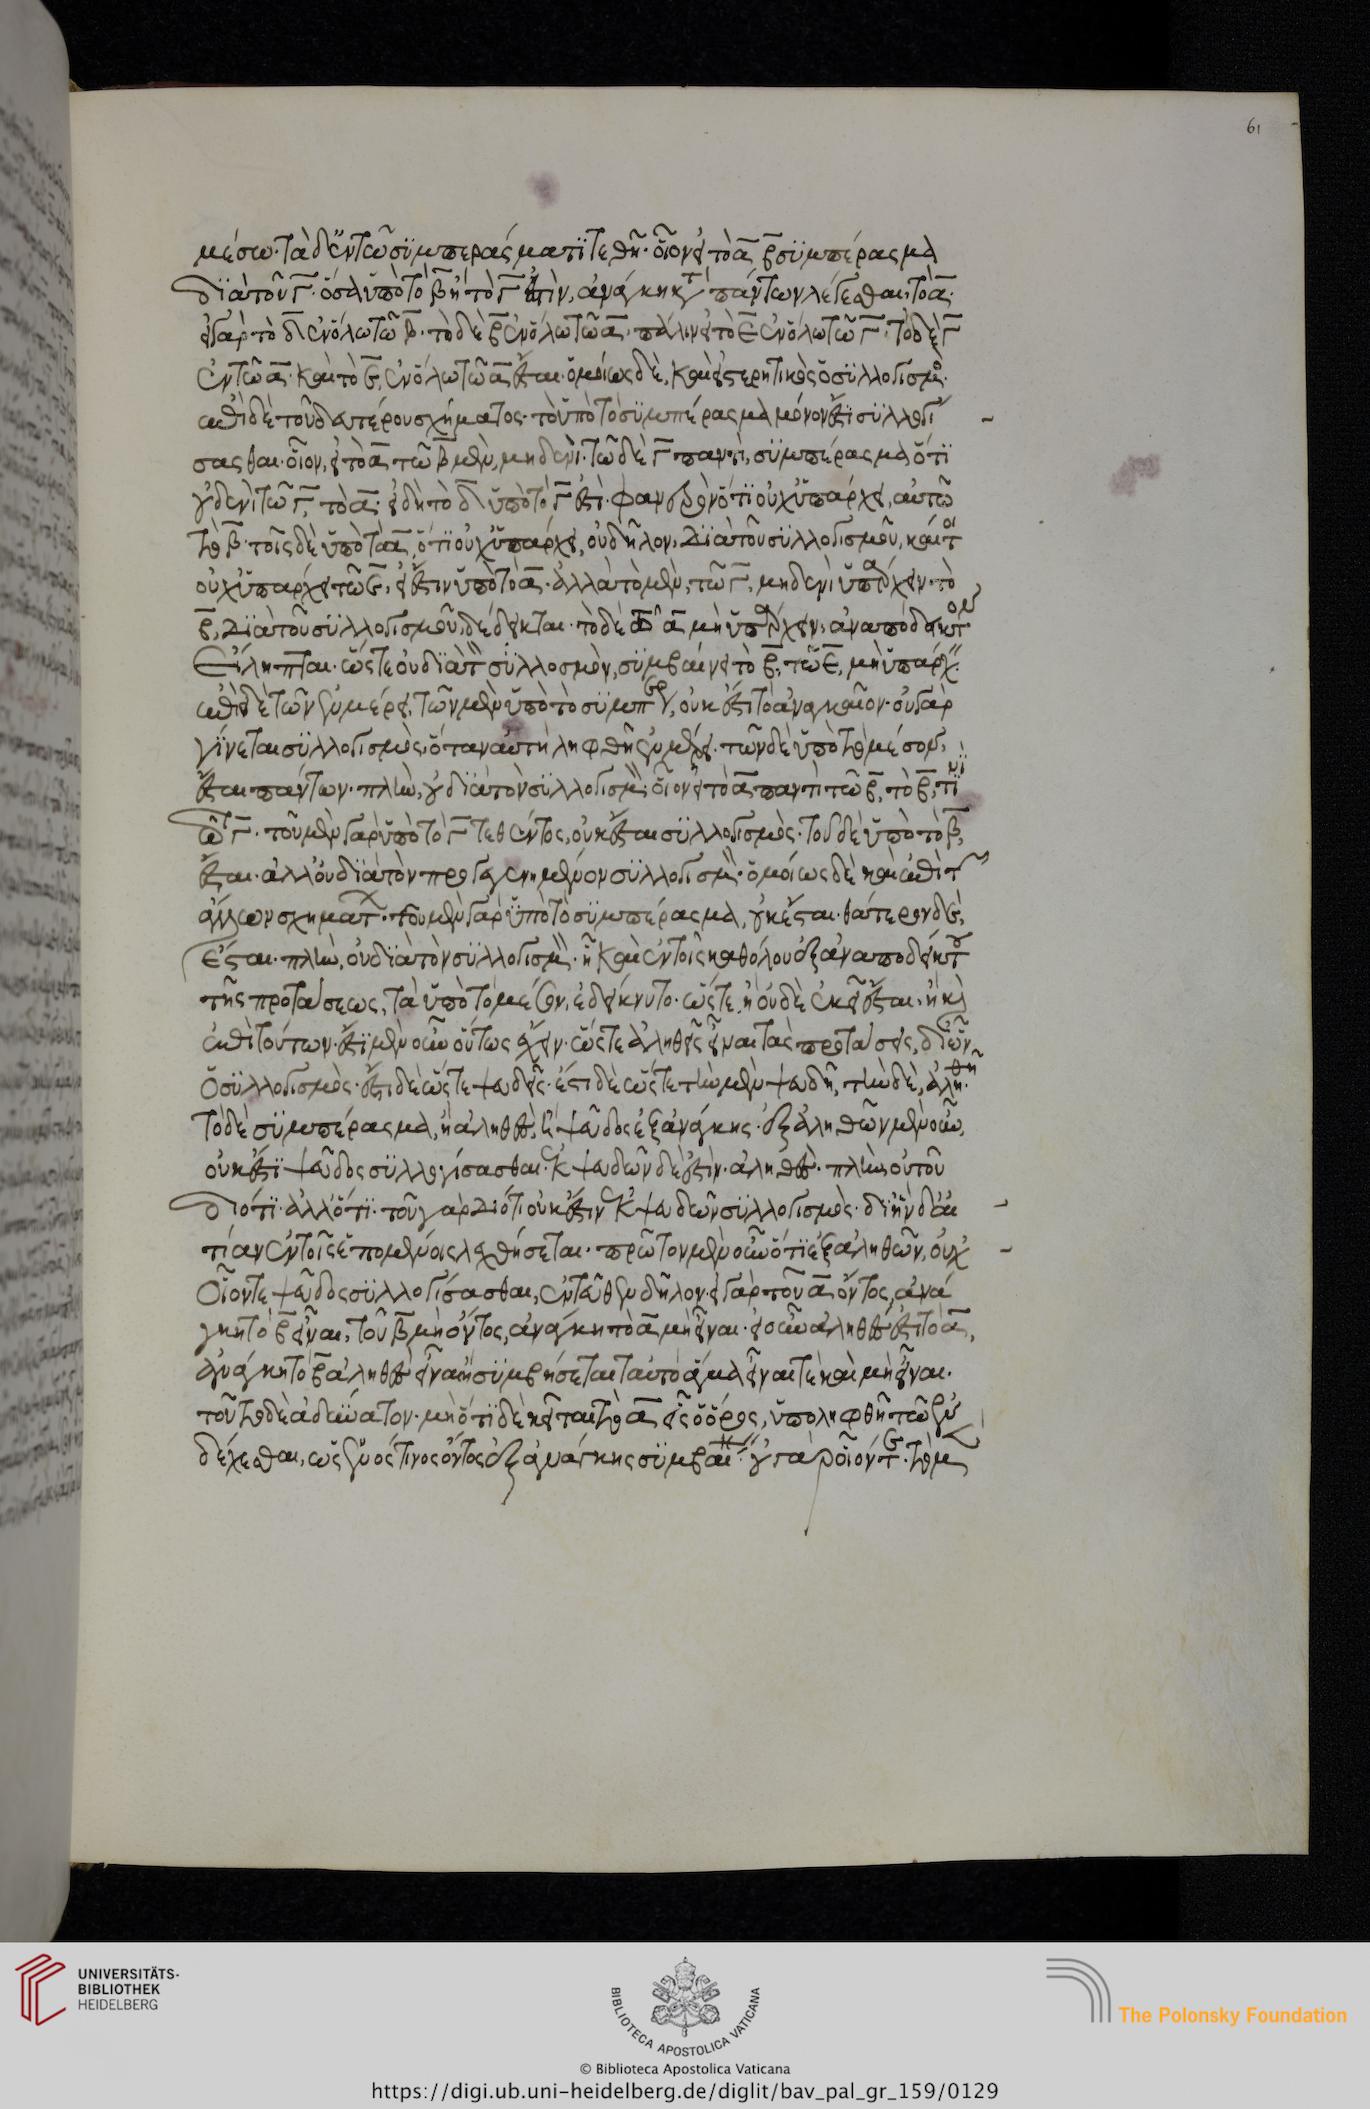 μέσω· τὰ δ' ἐν τῶ συμπεράσματι τεθῆ· οἷον εἰ τὸ α β συμπέρασμα
διὰ τοῦ γ· ὅσα ὑπὸ τὸ β ἢ τὸ γ ἐστὶν, ἀνάγκη κατὰ πάντων λέγεσθαι τὸ α·
εἰ γὰρ τὸ δ ἐν ὅλω τῶ β· τὸ δὲ β ἐν ὅλω τῶ α· πάλιν εἰ τὸ ε ἐν ὅλω τῶ γ· τὸ δὲ γ
ἐν τῶ α· καὶ τὸ ε, ἐν ὅλω τῶ α ἔσται· ὁμοίως δὲ, καὶ εἰ στερητικὸς ὁ συλλογισμὸς·
ἐπὶ δὲ τοῦ δευτέρου σχήματος· τὸ ὑπὸ τὸ συμπέρασμα μόνον ἔστι συλλογί
σασθαι· οἷον, εἰ τὸ α τῶ β μὲν, μηδενί· τῶ δὲ γ παντὶ, συμπέρασμα ὅτι
οὐδενὶ τῶ γ, τὸ α· εἰ δὴ τὸ δ ὑπὸ τὸ γ ἐστὶ· φανερὸν ὅτι οὐχ ὑπάρχει, αὐτῶ
τὸ β· τοῖς δὲ ὑπὸ τὸ α, ὅτι οὐχ ὑπάρχει, οὐ δῆλον, διὰ τοῦ συλλογισμοῦ, καίτοι
οὐχ ὑπάρχει τῶ ε, εἰ ἔστιν ὑπὸ τὸ α· ἀλλὰ τὸ μὲν, τῶ γ, μηδενὶ ὑπάρχειν· τὸ
β, διὰ τοῦ συλλογισμοῦ, δέδεικται· τὸ δὲ τῶ α μὴ ὑπάρχειν, ἀναπόδεικτον
εἴληπται· ὥστε οὐ διὰ τὸν συλλοσμὸν, συμβαίνει τὸ β, τῶ ε, μὴ ὑπάρχειν·
ἐπὶ δὲ τῶν ἐν μέρει, τῶν μὲν ὑπὸ τὸ συμπέρασμα, οὐκ ἔστι τὸ ἀναγκαῖον· οὐ γὰρ
γίνεται συλλογισμὸς, ὅταν αὐτὴ ληφθῆ ἐν μέρει· τῶν δὲ ὑπὸ τὸ μέσον,
ἔσται πάντων· πλὴν, οὐ διὰ τὸν συλλογισμόν· οἷον εἰ τὸ α παντὶ τῶ β, τὸ β, τινὶ
τῶ γ· τοῦ μὲν γὰρ ὑπὸ τὸ γ τεθέντος, οὐκ ἔσται συλλογισμὸς· τοῦ δὲ ὑπὸ τὸ β,
ἔσται· ἀλλ' οὐ διὰ τὸν προγεγενημένον συλλογισμὸν· ὁμοίως δὲ καὶ ἐπὶ τῶν
ἄλλων σχημάτων· τοῦ μὲν γὰρ ὑπὸ τὸ συμπέρασμα, οὐκ ἔσται· θάτερον δὲ,
ἔσται· πλὴν, οὐ διὰ τὸν συλλογισμὸν· ἧ καὶ ἐν τοῖς καθόλου ἐξ ἀναποδείκτου
τῆς προτάσεως, τὰ ὑπὸ τὸ μέσον, ἐδείκνυτο· ὥστε, ἢ οὐδὲ ἐκεῖ ἔσται, ἢ καὶ
ἐπὶ τούτων· ἔστι μὲν οὖν οὕτως ἔχειν· ὥστε ἀληθεῖς εἶναι τὰς προτάσεις, δι' ὧν
ὁ συλλογισμὸς· ἔστι δὲ ὥστε ψευδεῖς· ἔστι δὲ ὥστε τὴν μὲν ψευδῆ, τὴν δὲ, ἀληθῆ·
τὸ δὲ συμπέρασμα, ἢ ἀληθὲς, ἢ ψεῦδος ἐξ ἀνάγκης· ἐξ ἀληθῶν μὲν οὖν,
οὐκ ἔστι ψεῦδος συλλογίσασθαι· ἐκ ψευδῶν δὲ ἔστιν· ἀληθὲς· πλὴν, οὐ τοῦ
διότι· ἀλλ' ὅτι· τοῦ γὰρ διότι οὐκ ἔστιν ἐκ ψευδῶν συλλογισμὸς· δι' ἣν δ' αἰ
τίαν ἐν τοῖς ἑπομένοις λεχθήσεται· πρῶτον μὲν οὖν ὅτι ἐξ ἀληθῶν, οὐχ
οἷόν τε ψεῦδος συλλογίσασθαι, ἐντεῦθεν δῆλον· εἰ γὰρ τοῦ α ὄντος, ἀνά
γκη τὸ β εἶναι, τοῦ β μὴ ὄντος, ἀνάγκη τὸ α μὴ εἶναι· εἰ οὖν ἀληθὲς ἔστι τὸ α,
ἀνάγκη τὸ β ἀληθὲς εἶναι ἢ συμβήσεται ταὐτὸ ἅμα εἶναι τὲ καὶ μὴ εἶναι·
τοῦτο δὲ ἀδύνατον· μὴ ὅτι δὲ κεῖται τὸ α εἷς ὅρος, ὑποληφθῆ τῶ ἐν
δέχεσθαι, ὡς ἑνός τινος ὄντος ἐξ ἀνάγκης συμβαίνειν· οὐ γὰρ οἷόν τε· τὸ μ
61
UNIVERSITÄTS-
BIBLIOTHEK
HEIDELBERG
BIBLIOTECA APOSTOLICA VATICANA
© Biblioteca Apostolica Vaticana
The Polonsky Foundation
https://digi.ub.uni-heidelberg.de/diglit/bav_pal_gr_159/0129